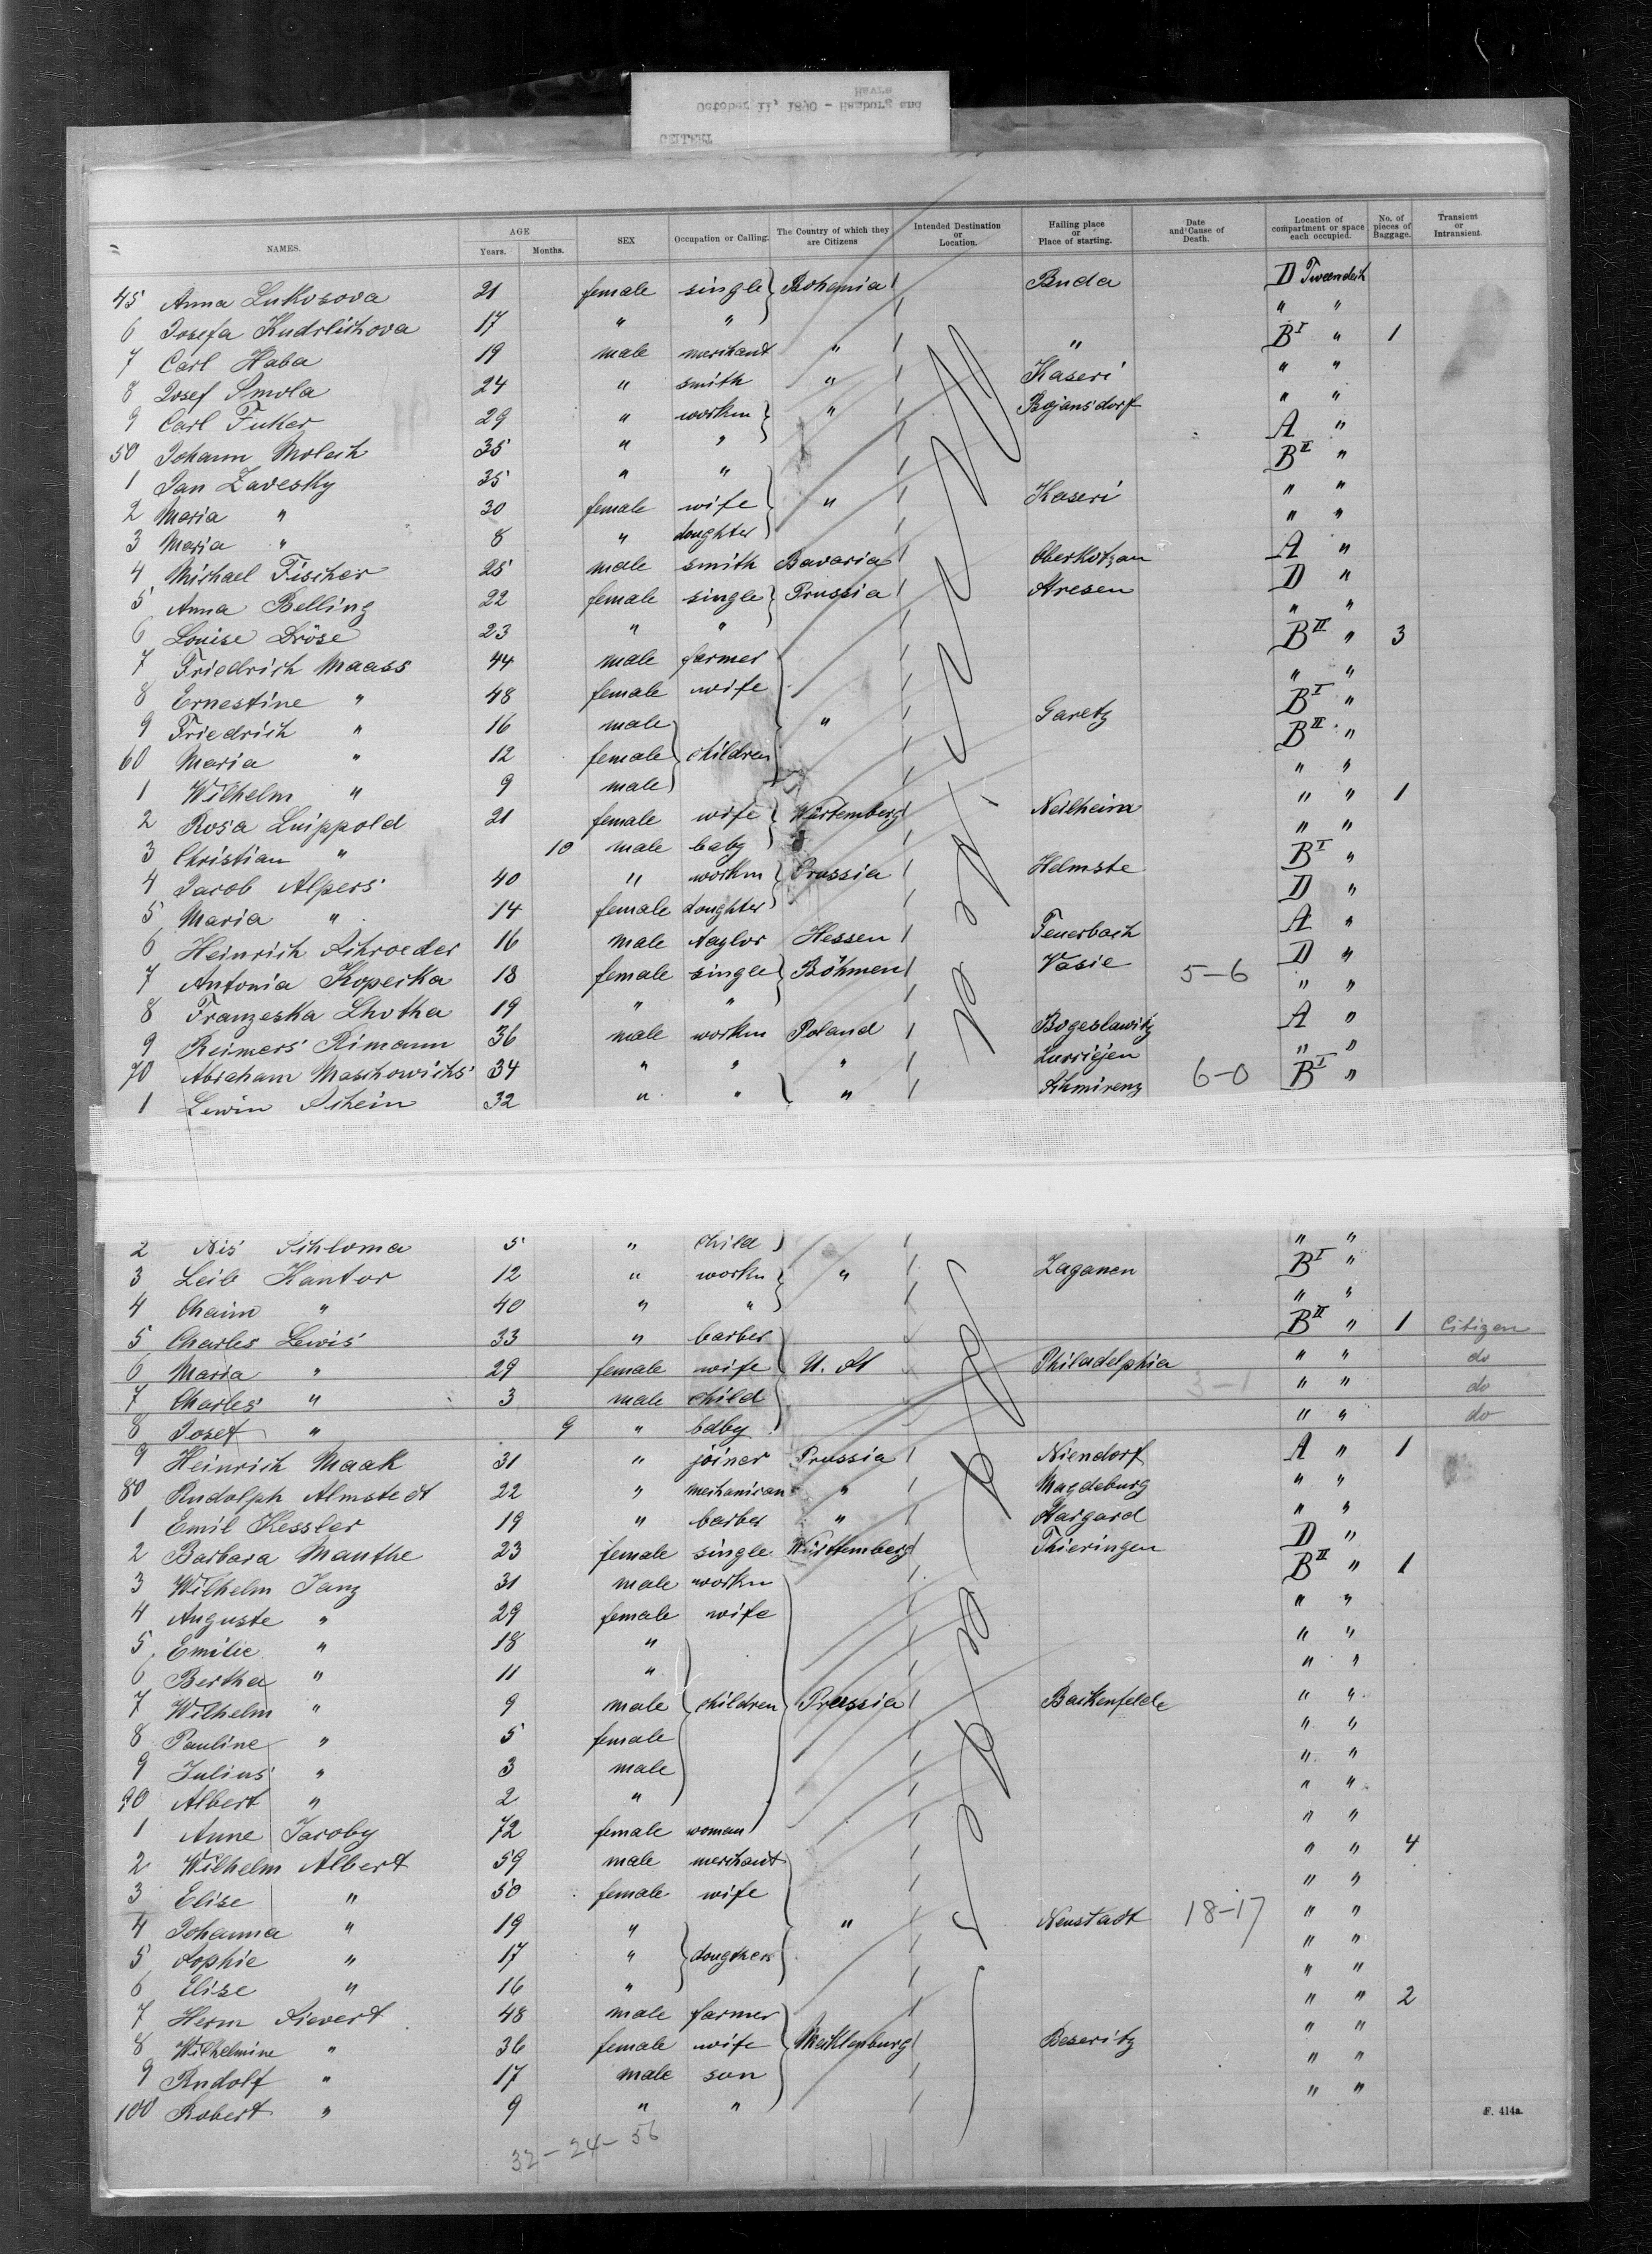 GELLERT
October 11, 1890 - Hamburg and
Havre
NAMES. AGE Years. Months. SEX Occupation or Calling. The Country of which they are Citizens Intended Destination or Location. Hailing place or Place of starting. Date and Cause of Death. Location of compartment or space each occupied. No. of pieces of Baggage. Transient or Intransient.
45 Anna Lukosova 21 female single Bohemia Buda D Tweendeck
6 Josefa Kudrlichova 17 " " " "
7 Carl Haba 19 male merchant " " B I " 1
8 Josef Smola 24 " smith " Kaseri " "
9 Carl Fuker 29 " workm " Bojansdorf " "
50 Johann Molach 35 " " A "
1 Jan Zavesky 35 " " B II "
2 Maria " 30 female wife " Kaseri " "
3 Maria " 8 " doughter " "
4 Michael Fischer 25 male smith Bavaria Oberkotzau A "
5 Anna Belling 22 female single Prussia Stresen D "
6 Louise Dröse 23 " " " "
7 Friedrich Maass 44 male farmer B II " 3
8 Ernestine " 48 female wife " "
9 Friedrich " 16 male " Garetz B I "
60 Maria " 12 female children B II "
1 Wilhelm " 9 male " "
2 Rosa Luippold 21 female wife Würtemberg Neilheim " " 1
3 Christian " 10 male baby " "
4 Jacob Alpers 40 " workm Prussia Helmste B I "
5 Maria " 14 female doughter D "
6 Heinrich Schroeder 16 male taylor Hessen Feuerbach A "
7 Antonia Kopecka 18 female single Böhmen Vasic 5-6 D "
8 Franzeska Lhotha 19 " " " "
9 Reimers Rimann 36 male workm Poland Bogeslawitz A "
70 Abraham Maschowichs 34 " " " " "
1 Lewin Schein 32 " " " Schmirenz 6-0 B I "
2 Nis Schloma 5 " child " "
3 Leib Kantor 12 " workm " Zaganen B I "
4 Chaim " 40 " " " "
5 Charles Lewis 33 " barber B II " 1 Citizen
6 Maria " 29 female wife U. St Philadelphia " " do
7 Charles " 3 male child 3-1 " " do
8 Josef " 9 " baby " " do
9 Heinrich Maak 31 " joiner Prussia Niendorf A " 1
80 Rudolph Almstedt 22 " mechanican " Magdeburg " "
1 Emil Kessler 19 " barber " Stargard " "
2 Barbara Manthe 23 female single Württemberg Thieringen D "
3 Wilhelm Janz 31 male workm B II " 1
4 Auguste " 29 female wife " "
5 Emilie " 18 " " "
6 Bertha " 11 " " "
7 Wilhelm " 9 male children Prussia Backenfelde " "
8 Pauline " 5 female " "
9 Julius " 3 male " "
90 Albert " 2 " " "
1 Anne Jacoby 72 female woman " "
2 Wilhelm Albert 59 male merchant " " 4
3 Elise " 50 female wife " "
4 Johanna " 19 " " Neustadt 18-17 " "
5 Sophie " 17 " doughters " "
6 Elise " 16 " " "
7 Herm Sievert 48 male farmer " " 2
8 Wilhelmine " 36 female wife Mecklenburg Beseritz " "
9 Rudolf " 17 male son " "
100 Robert " 9 " " " "
F. 414a.
32-24-56